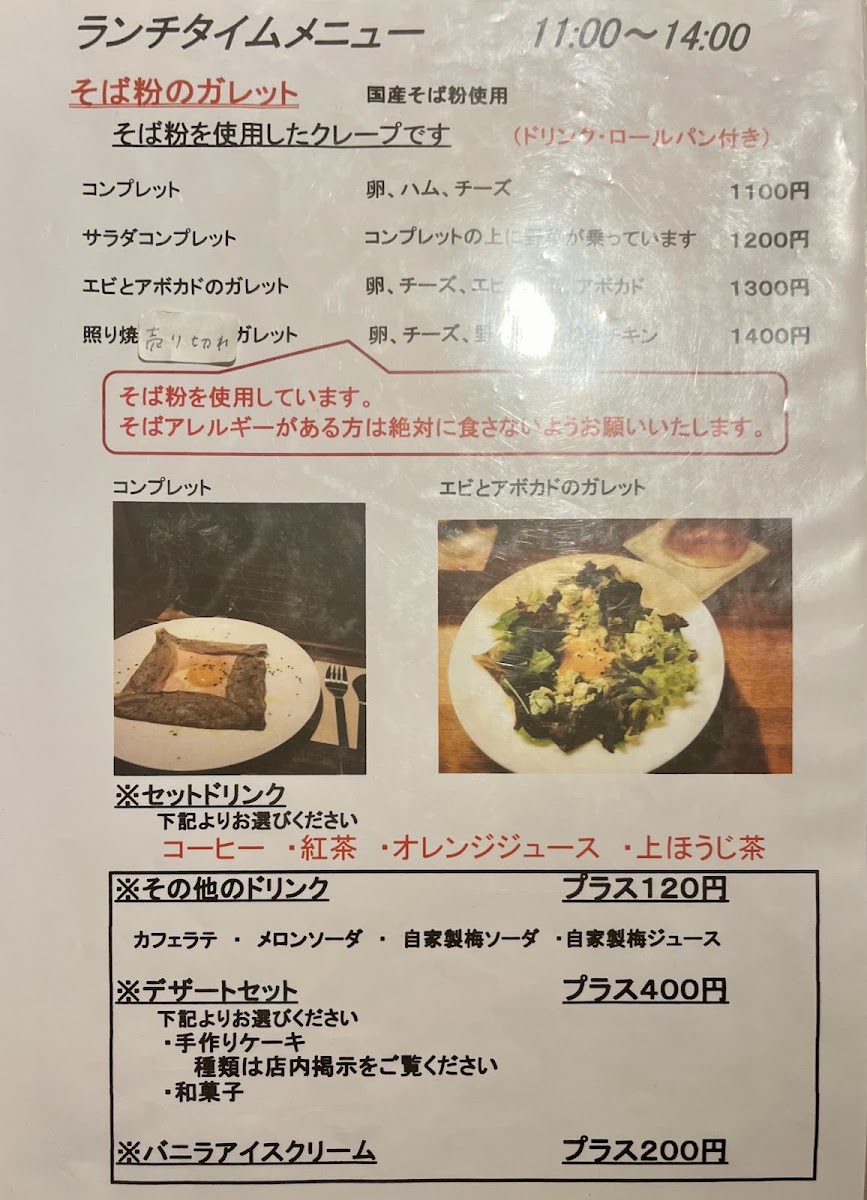 ランチタイムメニュー 11:00～14:00
そば粉のガレット 国産そば粉使用
そば粉を使用したクレープです (ドリンク・ロールパン付き)
コンプレット 卵、ハム、チーズ 1100円
サラダコンプレット コンプレットの上に野菜が乗っています 1200円
エビとアボカドのガレット 卵、チーズ、エビ、 アボカド 1300円
照り焼 売り切れ ガレット 卵、チーズ、野 チキン 1400円
そば粉を使用しています。
そばアレルギーがある方は絶対に食さないようお願いいたします。
コンプレット エビとアボカドのガレット
※セットドリンク
下記よりお選びください
コーヒー ・紅茶 ・オレンジジュース ・上ほうじ茶
※その他のドリンク プラス120円
カフェラテ ・ メロンソーダ ・ 自家製梅ソーダ ・自家製梅ジュース
※デザートセット プラス400円
下記よりお選びください
・手作りケーキ
種類は店内掲示をご覧ください
・和菓子
※バニラアイスクリーム プラス200円